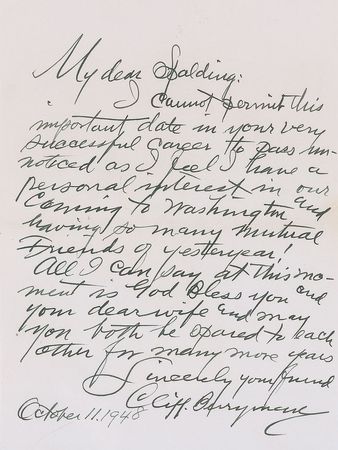 My dear Spalding:
I cannot permit this
important date in your very
successful career to pass un-
noticed as I feel I have a
personal interest in our
coming to Washington and
having so many mutual
Friends of yesteryear,
All I can say at this mo-
ment is God bless you and
your dear wife and may
you both be spared to each
other for many more years
Sincerely your friend
Cliff. Berryman
October 11. 1948